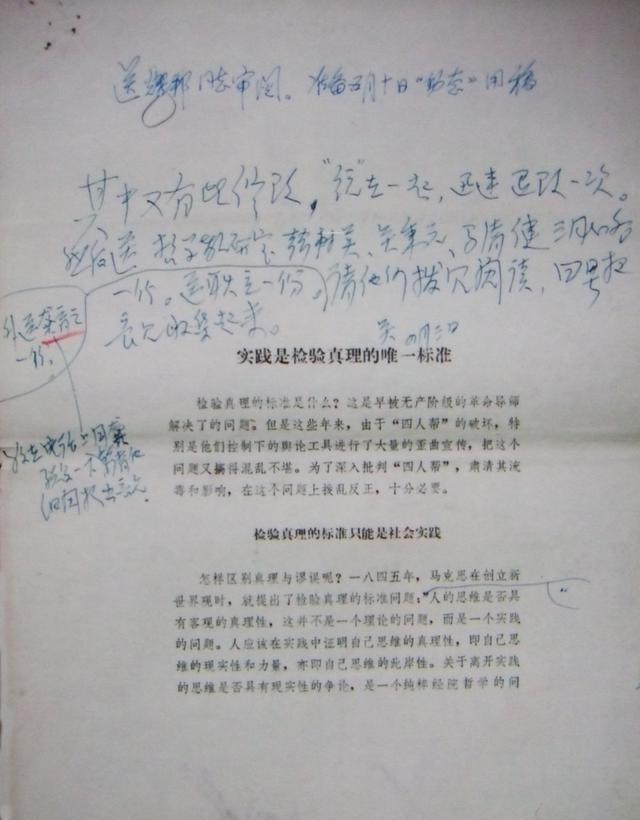 送耀邦同志审阅。准备五月十日"动态"用稿
其中又有些修改，"统"在一起，迅速退改一次。
一份。送耿立一份。请他们拨冗阅读，
吴
外送
一份。
实践是检验真理的唯一标准
检验真理的标准是什么？这是早被无产阶级的革命导师
解决了的问题。但是这些年来，由于"四人帮"的破坏，特
别是他们控制下的舆论工具进行了大量的歪曲宣传，把这个
问题又搞得混乱不堪。为了深入批判"四人帮"，肃清其流
毒和影响，在这个问题上拨乱反正，十分必要。
检验真理的标准只能是社会实践
怎样区别真理与谬误呢？一八四五年，马克思在创立新
世界观时，就提出了检验真理的标准问题："人的思维是否具
有客观的真理性，这并不是一个理论的问题，而是一个实践
的问题。人应该在实践中证明自己思维的真理性，即自己思
维的现实性和力量，亦即自己思维的此岸性。关于离开实践
的思维是否具有现实性的争论，是一个纯粹经院哲学的问